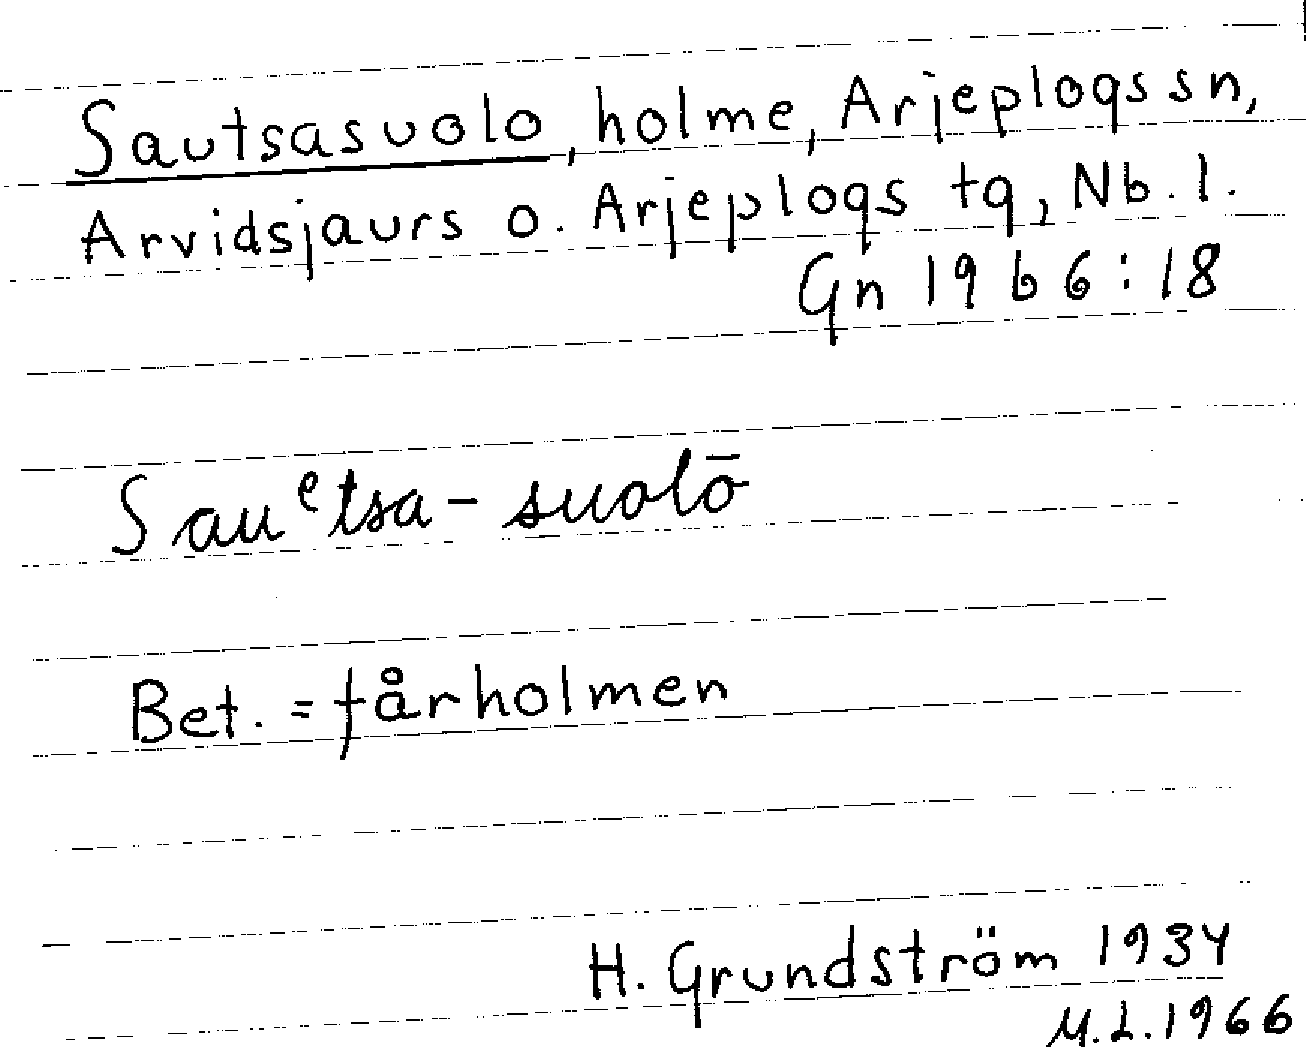 Sautsasuolo, holme, Arjeplogs sn,
Arvidsjaurs o. Arjeplogs tg, Nb. l.
Gn 1966:18
Sauᵉtsa-suolō
Bet. = fårholmen
H. Grundström 1934
M.L.1966